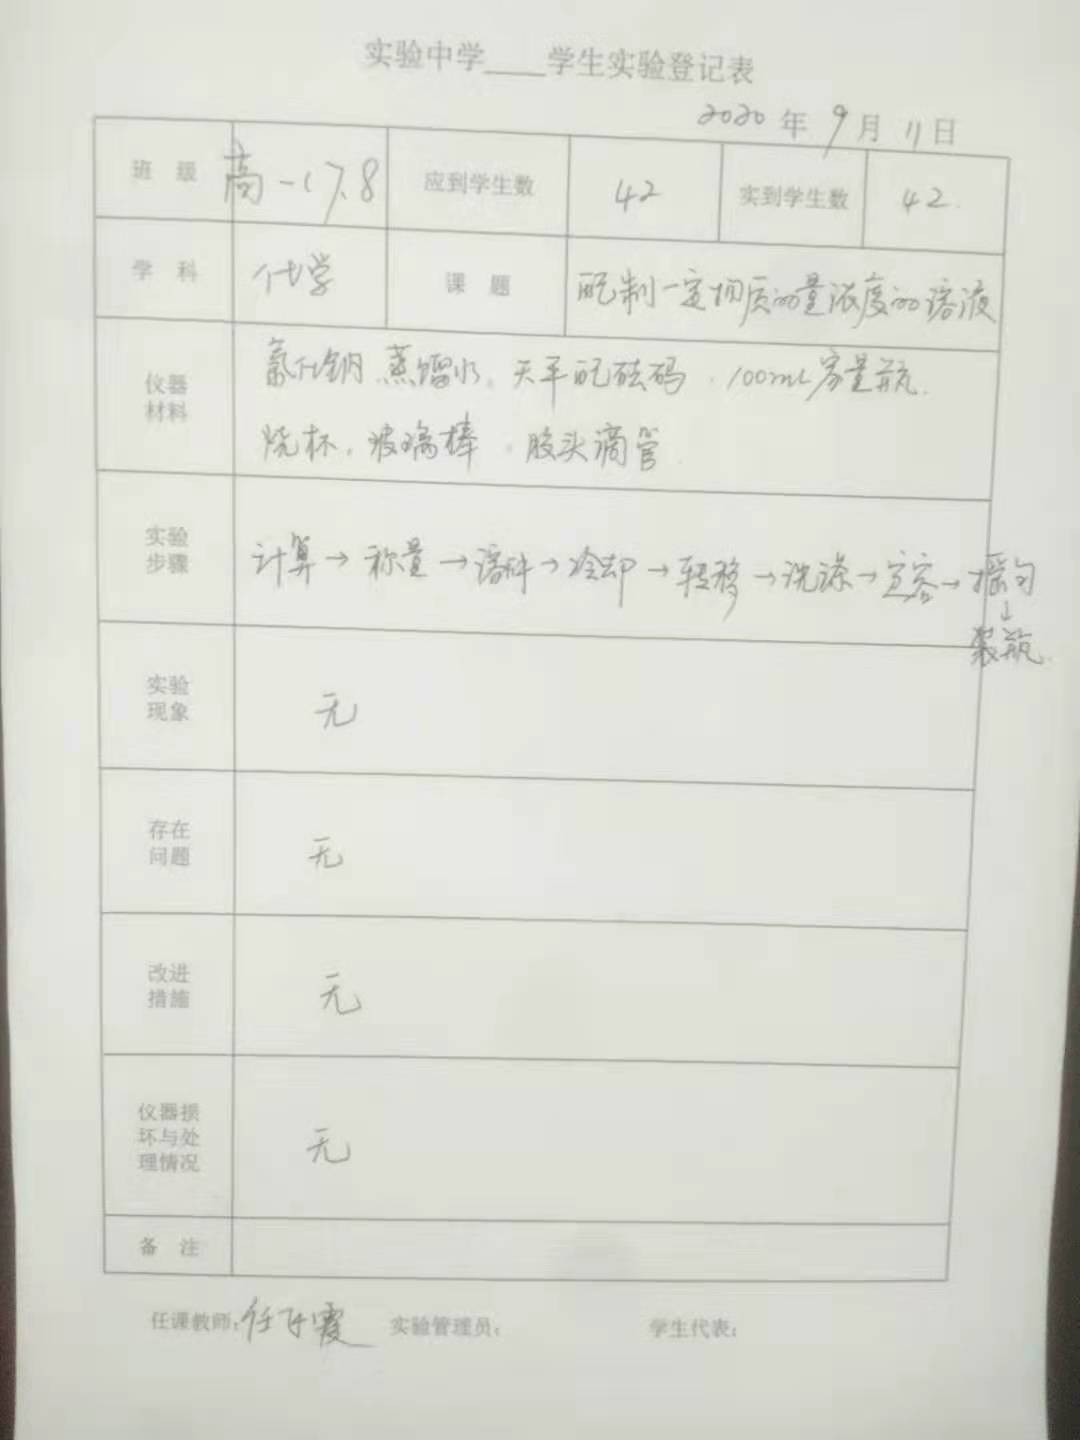 实验中学____学生实验登记表
2020年9月11日
班 级 高一(7.8 应到学生数 42 实到学生数 42.
学 科 化学 课 题 配制一定物质的量浓度的溶液
仪器
材料
氯化钠 蒸馏水. 天平配砝码. 100mL容量瓶.
烧杯. 玻璃棒. 胶头滴管.
实验
步骤
计算→称量→溶解→冷却→转移→洗涤→定容→摇匀
↓
装瓶.
实验
现象
无
存在
问题
无
改进
措施
无
仪器损
坏与处
理情况
无
备 注
任课教师: 任 霞 实验管理员: 学生代表: